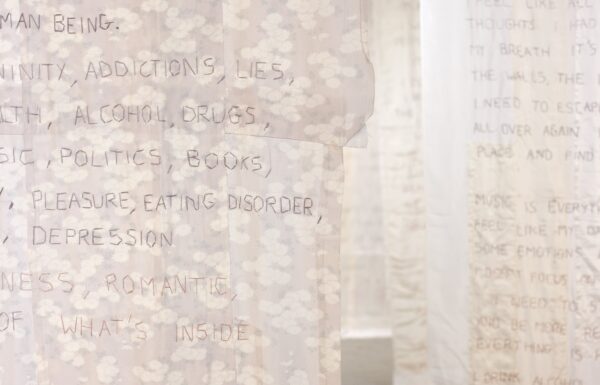 MAN BEING.
NINITY, ADDICTIONS, LIES,
LTH, ALCOHOL, DRUGS,
SIC, POLITICS, BOOKS,
Y, PLEASURE, EATING DISORDER,
, DEPRESSION
NESS, ROMANTIC,
OF WHAT'S INSIDE
FEEL LIKE ALL
THOUGHTS I HAD
MY BREATH IT'S
THE WALLS, THE
I NEED TO ESCAP
ALL OVER AGAIN
PLACE AND FIND
MUSIC IS EVERYTH
FEEL LIKE MY
SOME EMOTIONS
FOCUS
NEED TO
AND BE MORE
EVERYTHING IS
I DRINK ALCOHOL